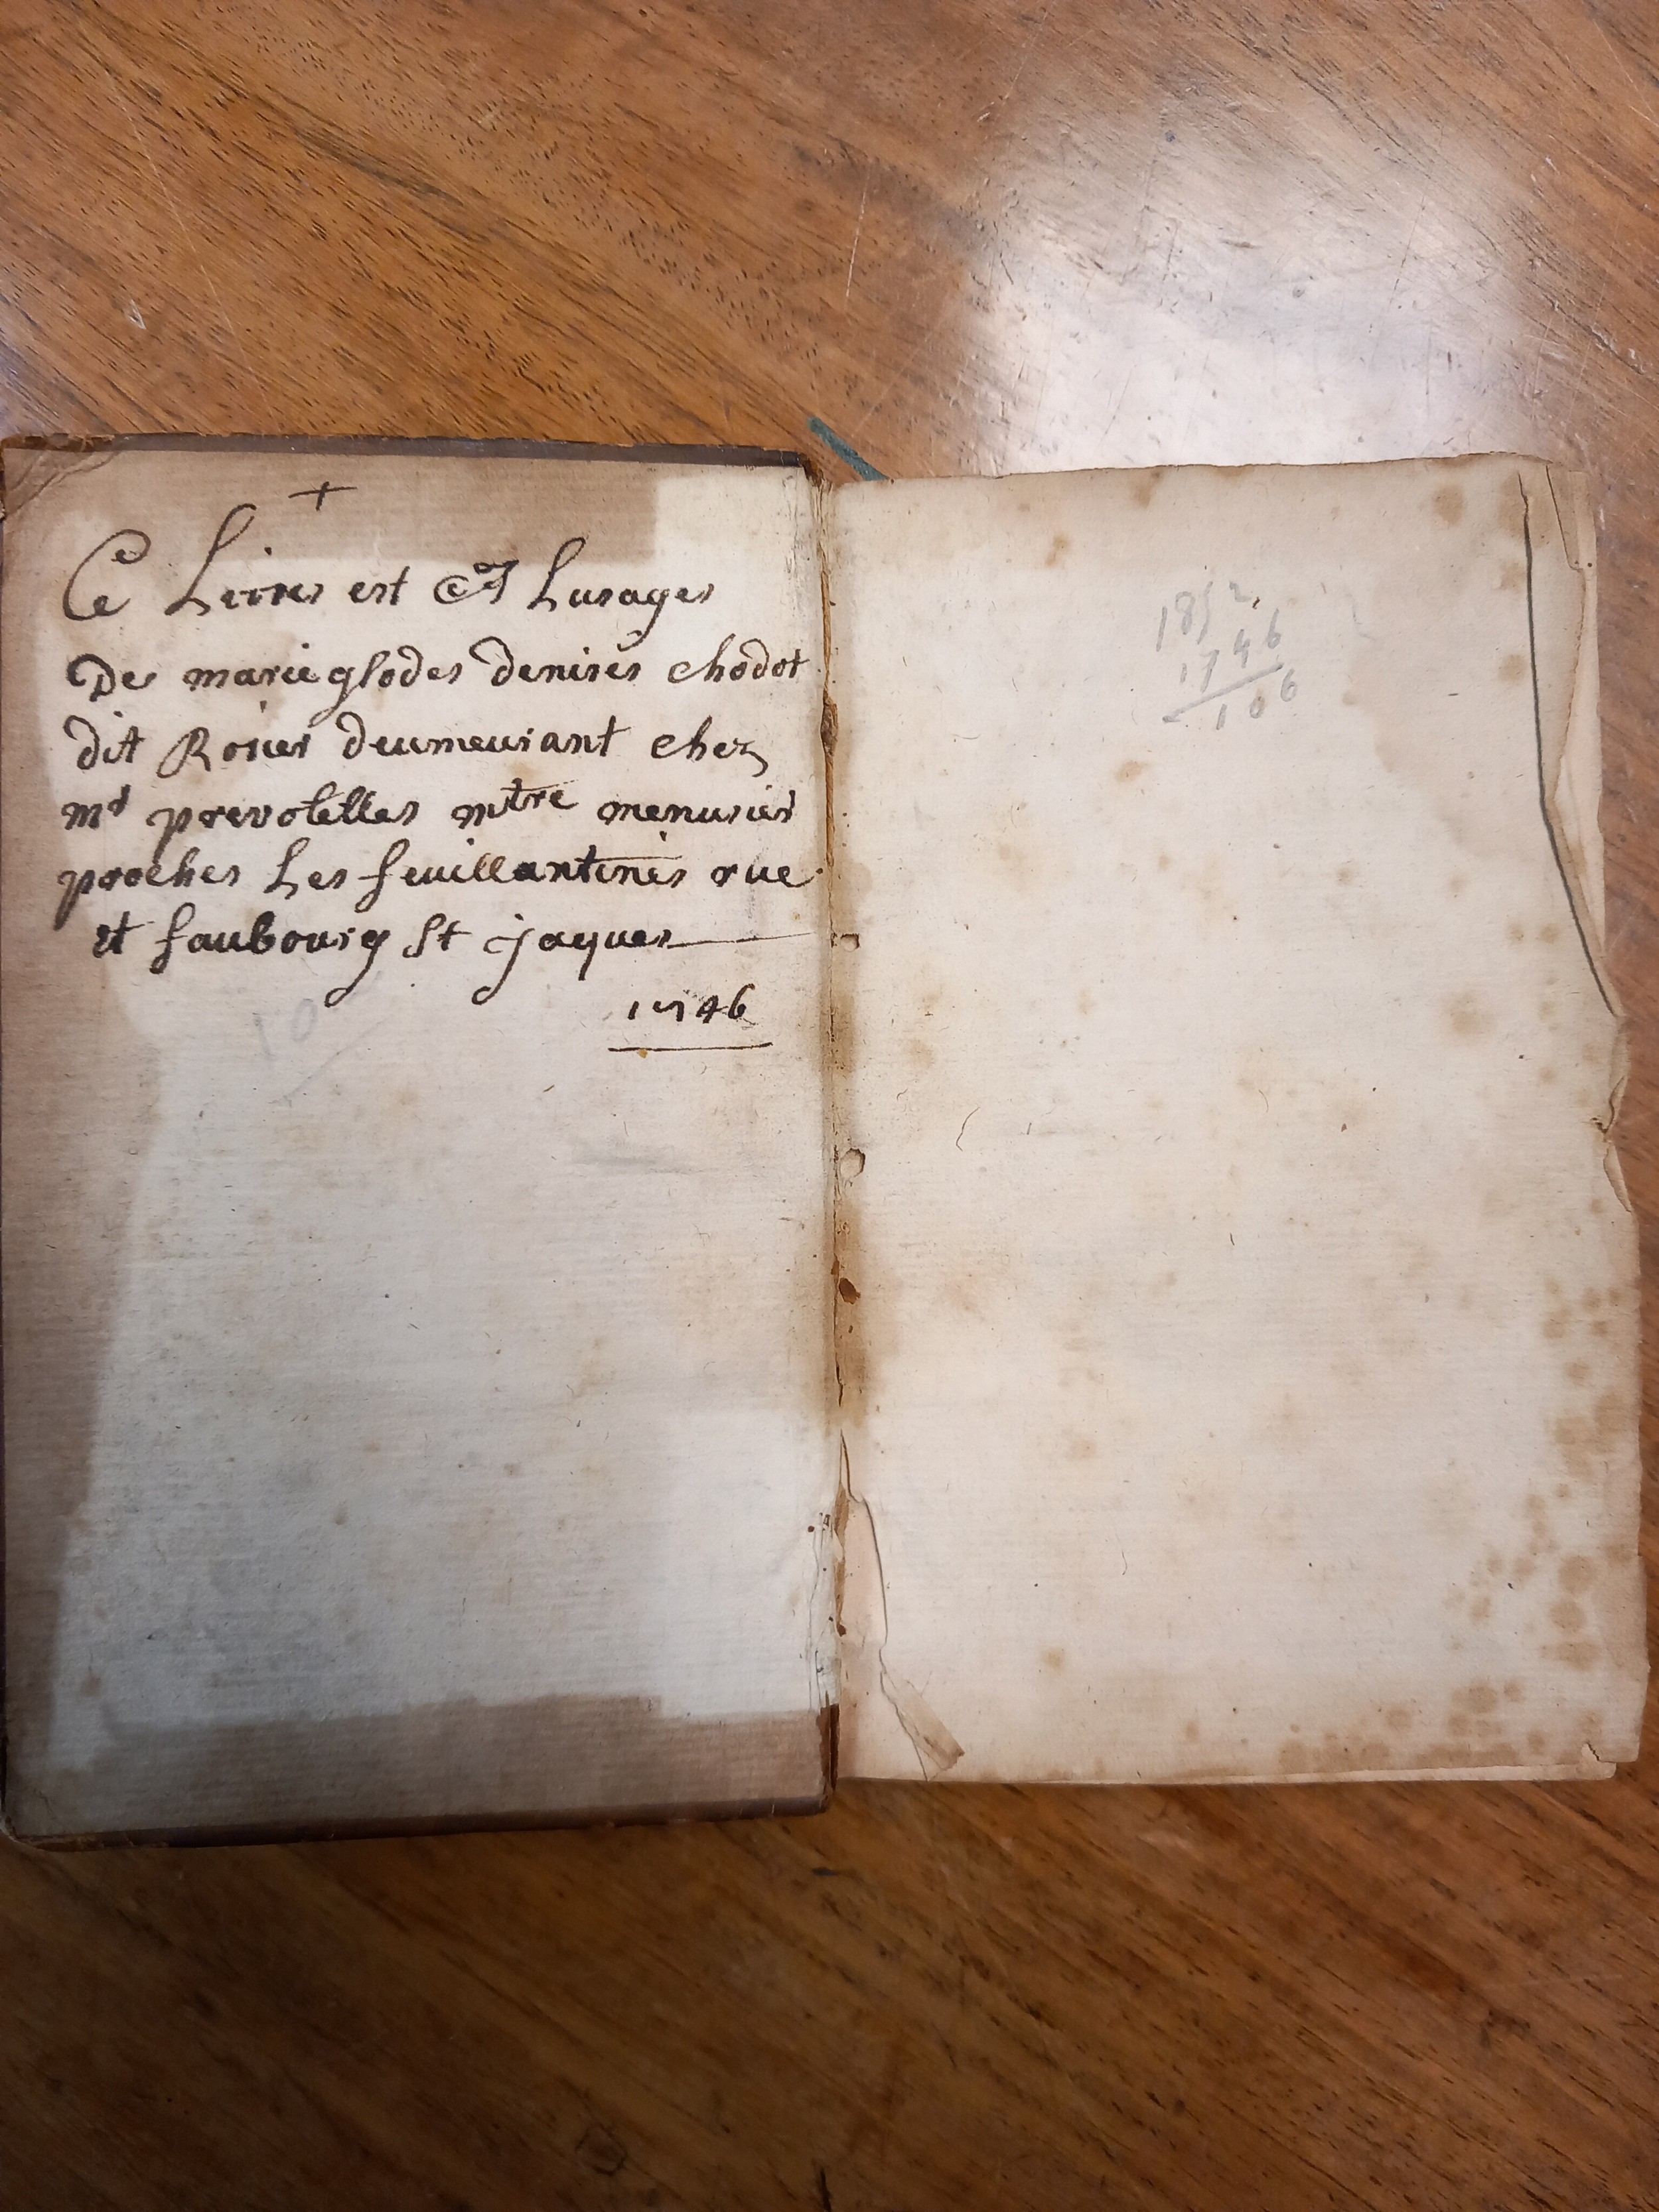 +
Ce Livres est a Lusages
De marie glodes denises chodot
dit Rosier deumeurant chez
md prevotelles mtre menusier
proches Les feuillantines rue
et faubourg St jaques
1746
10
1852
1746
106